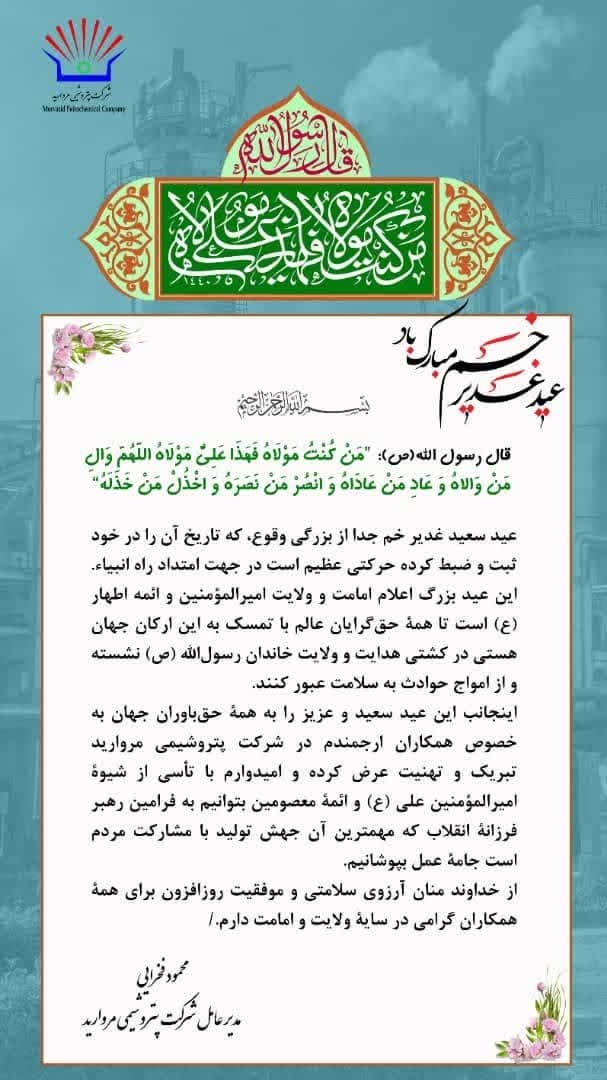 شرکت پتروشیمی مروارید
Morvarid Petrochemical Company
قال رسول الله
من کنت مولاه فهذا علی مولاه
۱۴۴۰
عید غدیر خم مبارک باد
بسم الله الرحمن الرحیم
قال رسول الله(ص): "مَنْ كُنْتُ مَوْلَاهُ فَهَذَا عَلِىٌّ مَوْلَاهُ اللّهُمَّ وَالِ
مَنْ وَالاهُ وَ عَادِ مَنْ عَادَاهُ وَ انْصُرْ مَنْ نَصَرَهُ وَ اخْذُلْ مَنْ خَذَلَهُ"
عید سعید غدیر خم جدا از بزرگی وقوع، که تاریخ آن را در خود
ثبت و ضبط کرده حرکتی عظیم است در جهت امتداد راه انبیاء.
این عید بزرگ اعلام امامت و ولایت امیرالمؤمنین و ائمه اطهار
(ع) است تا همهٔ حق‌گرایان عالم با تمسک به این ارکان جهان
هستی در کشتی هدایت و ولایت خاندان رسول‌الله (ص) نشسته
و از امواج حوادث به سلامت عبور کنند.
اینجانب این عید سعید و عزیز را به همهٔ حق‌باوران جهان به
خصوص همکاران ارجمندم در شرکت پتروشیمی مروارید
تبریک و تهنیت عرض کرده و امیدوارم با تأسی از شیوهٔ
امیرالمؤمنین علی (ع) و ائمهٔ معصومین بتوانیم به فرامین رهبر
فرزانهٔ انقلاب که مهمترین آن جهش تولید با مشارکت مردم
است جامهٔ عمل بپوشانیم.
از خداوند منان آرزوی سلامتی و موفقیت روزافزون برای همهٔ
همکاران گرامی در سایهٔ ولایت و امامت دارم./
محمود فخرایی
مدیرعامل شرکت پتروشیمی مروارید